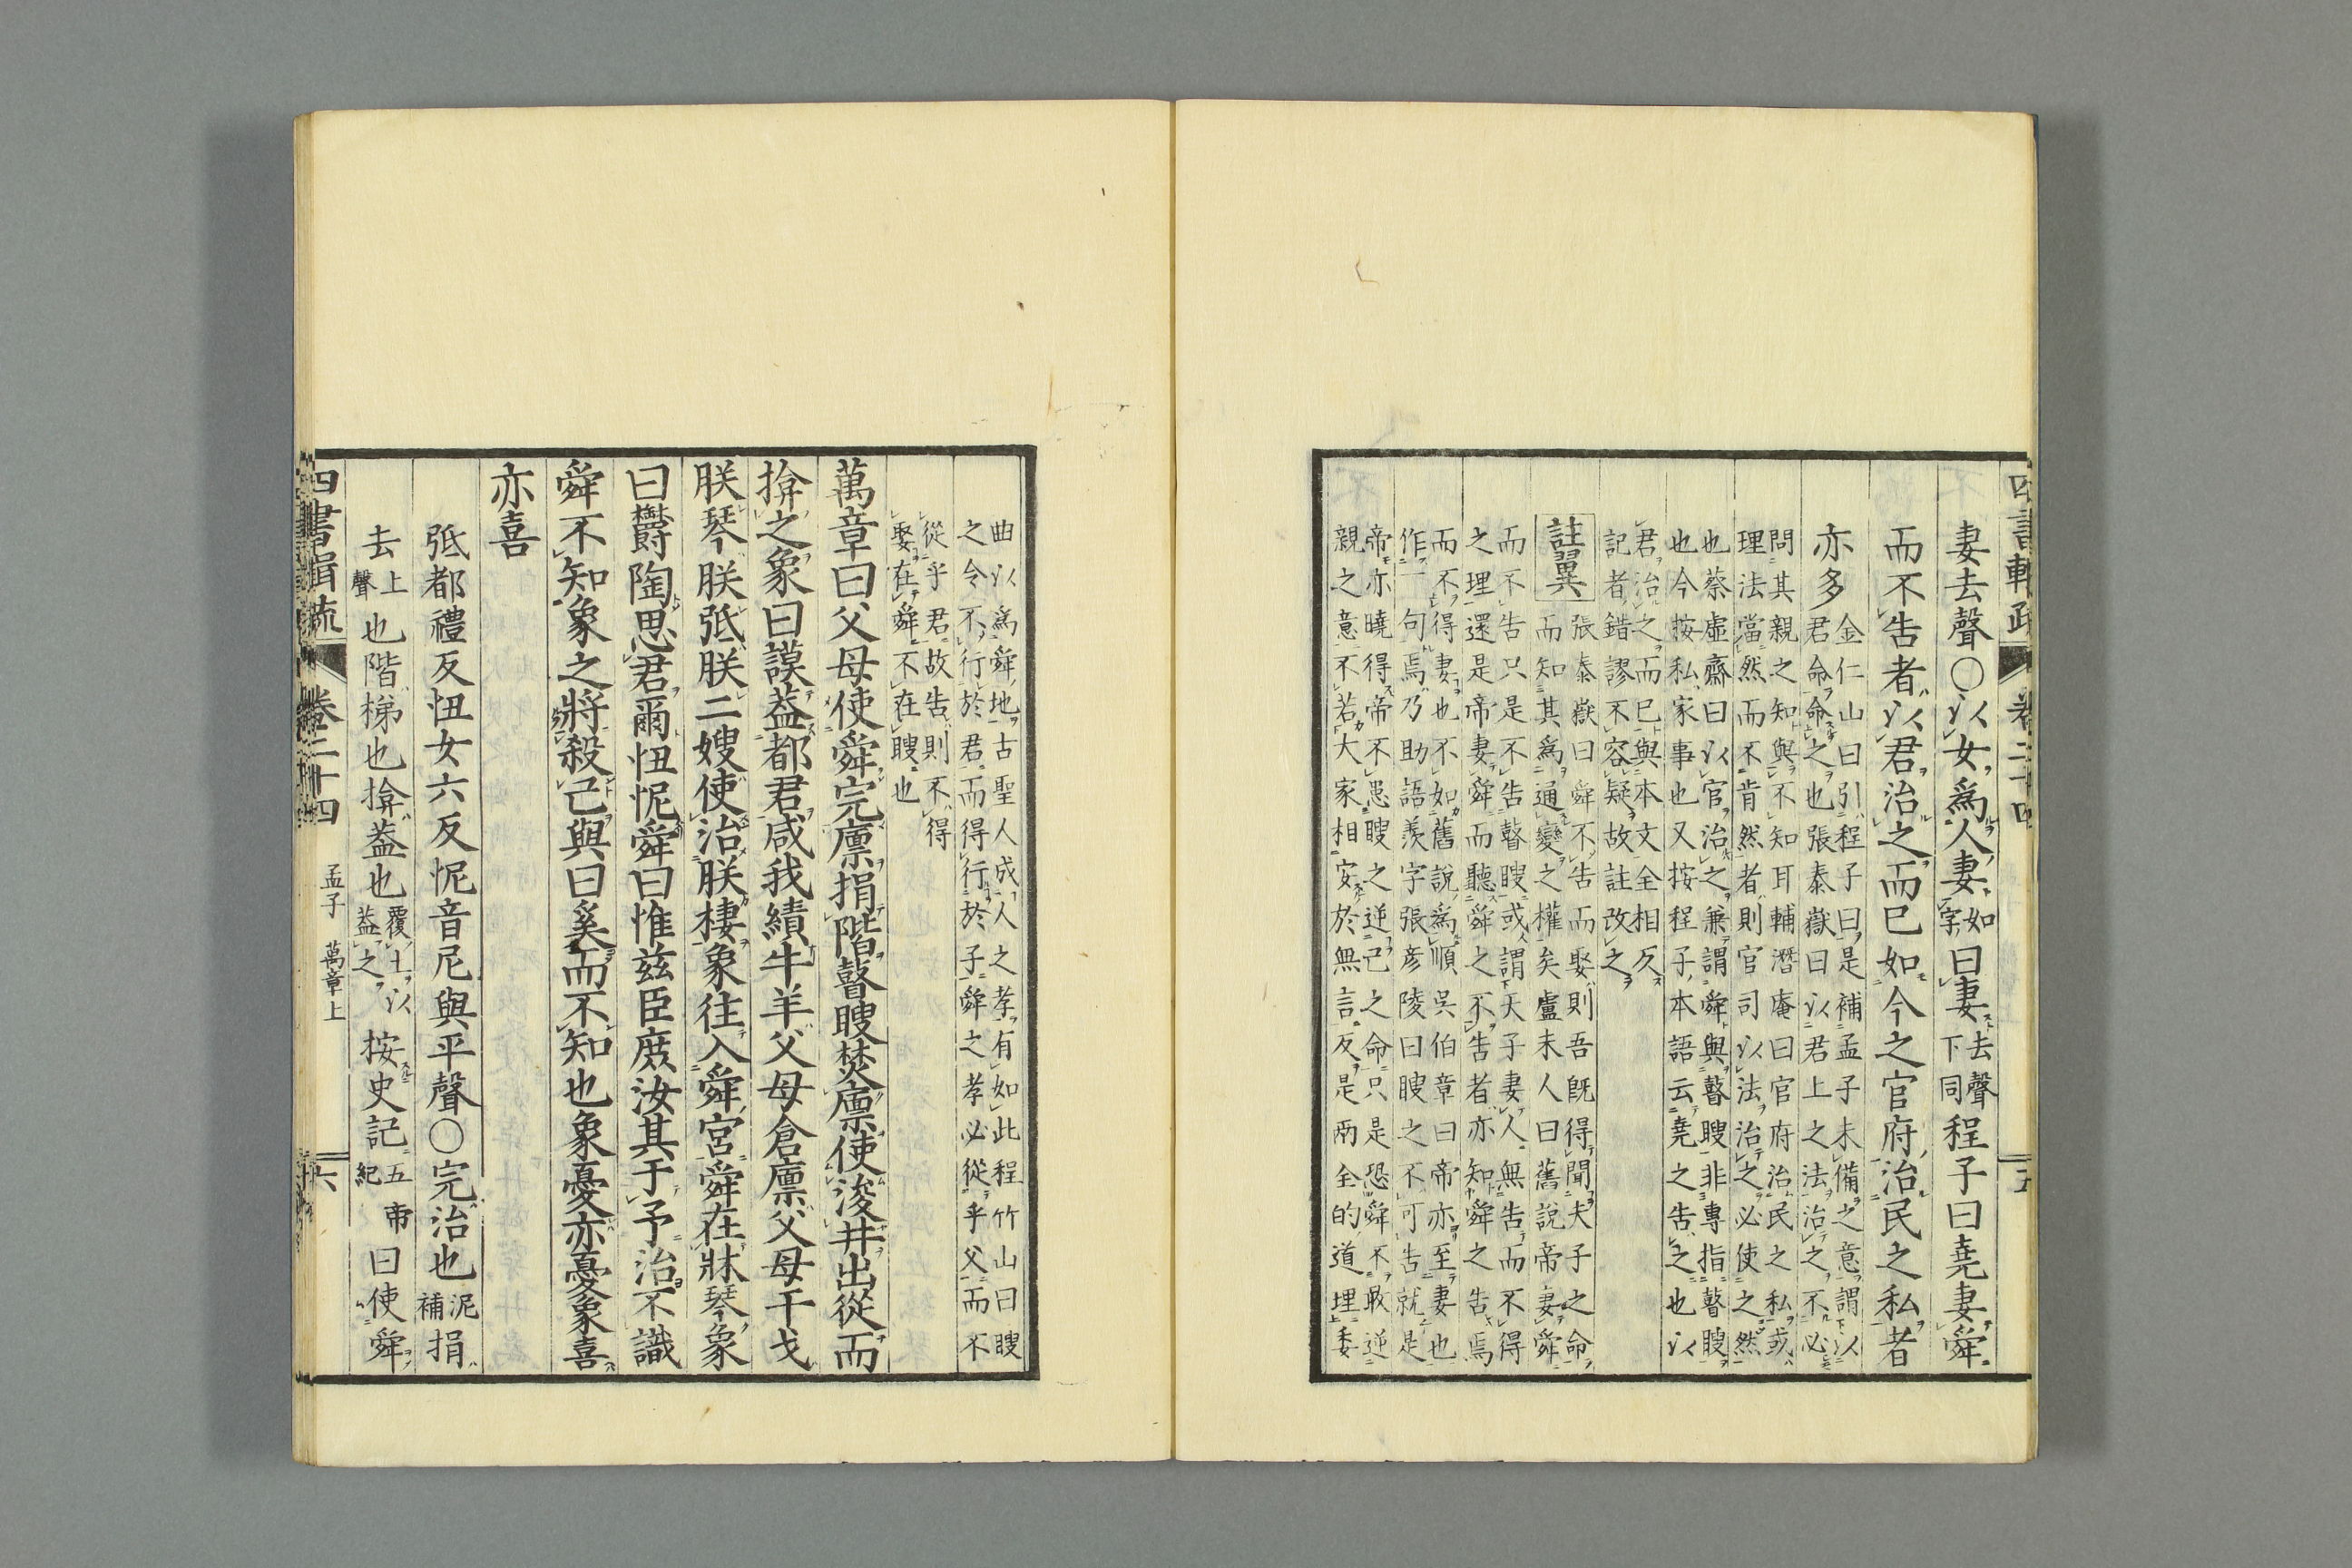 四書輯疏　卷二十四　五
妻去聲○以女爲人妻如字曰妻去聲下同程子曰堯妻舜
而不告者以君治之而已如今之官府治民之私者
亦多
金仁山曰引程子曰是補孟子未備之意謂以
君命命之也張泰嶽曰以君上之法治之不必
問其親之知與不知耳輔潛庵曰官府治民之私或
理法當然而不肯然者則官司以法治之必使之然
也蔡虛齋曰以官治之兼謂舜與瞽瞍非專指瞽瞍
也今按私家事也又按程子本語云堯之告之也以
君治之而已與本文全相反
記者錯謬不容疑故註改之
註翼
張泰嶽曰舜不告而娶則吾旣得聞夫子之命
而知其爲通變之權矣盧未人曰舊說帝妻舜
而不告只是不告瞽瞍或謂天子妻人無告而不得
之理還是帝妻舜而聽舜之不告者亦知舜之告焉
而不得妻也不如舊說爲順吳伯章曰帝亦至妻也
作一句焉乃助語羨字張彥陵曰瞍之不可告就是
帝亦曉得帝不愚瞍之逆己之命只是恐舜不敢逆
親之意不若大家相安於無言反是兩全的道理委
曲以爲舜地古聖人成人之孝有如此程竹山曰瞍
之令不行於君而得行於子舜之孝必從乎父而不
從乎君故告則不得
娶在舜不在瞍也
萬章曰父母使舜完廩捐階瞽瞍焚廩使浚井出從而
揜之象曰謨蓋都君咸我績牛羊父母倉廩父母干戈
朕琴朕弤朕二嫂使治朕棲象往入舜宮舜在牀琴象
曰鬱陶思君爾忸怩舜曰惟茲臣庶汝其于予治不識
舜不知象之將殺己與曰奚而不知也象憂亦憂象喜
亦喜
弤都禮反忸女六反怩音尼與平聲○完治也泥補捐
去上聲也階梯也揜蓋也覆土以蓋之按史記五帝紀曰使舜
四書輯疏　卷二十四　孟子　萬章上　六